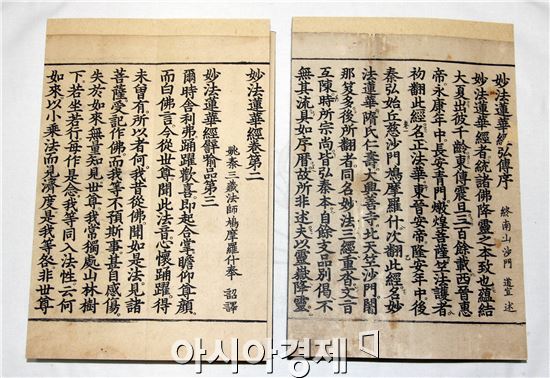 妙法蓮華經弘傳序 終南山沙門 道宣 述
妙法蓮華經者統諸佛降靈之本致也蘊結
大夏出彼千齡東傳震旦三百餘載西晉惠
帝永康年中長安青門燉煌菩薩竺法護者
初翻此經名正法華東晉安帝隆安年中後
秦弘始丘慈沙門鳩摩羅什次翻此經名妙
法蓮華隋氏仁壽大興善寺北天竺沙門闍
那笈多後所翻者同名妙法三經重沓文旨
互陳時所宗尚皆弘秦本自餘支品別偈不
無其流具如序曆故所非述夫以靈嶽降靈
妙法蓮華經卷第二
姚秦三藏法師鳩摩羅什奉 詔譯
妙法蓮華經譬喻品第三
爾時舍利弗踊躍歡喜即起合掌瞻仰尊顏
而白佛言今從世尊聞此法音心懷踊躍得
未曾有所以者何我昔從佛聞如是法見諸
菩薩受記作佛而我等不預斯事甚自感傷
失於如來無量知見世尊我常獨處山林樹
下若坐若行每作是念我等同入法性云何
如來以小乘法而見濟度是我等咎非世尊
아시아경제